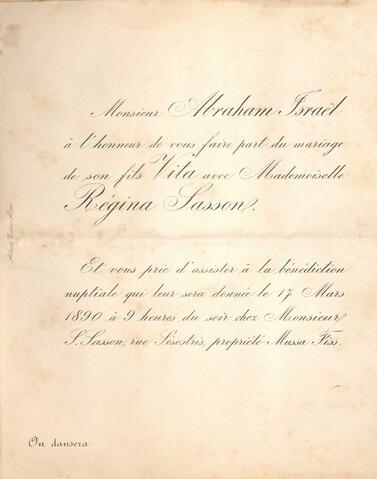 Monsieur Abraham Israël
à l'honneur de vous faire part du mariage
de son fils Vita avec Mademoiselle
Régina Sasson.
Et vous prie d'assister à la bénédiction
nuptiale qui leur sera donnée le 17 Mars
1890 à 9 heures du soir chez Monsieur
S. Sasson, rue Sésostris, propriété Mussa Fiss.
On dansera